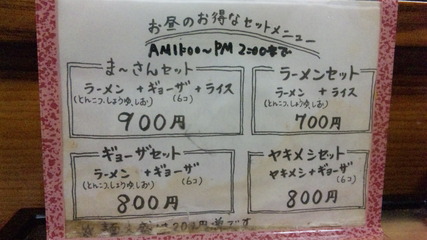 お昼のお得なセットメニュー
AM11:00〜PM2:00まで
ま〜さんセット
ラーメン + ギョーザ + ライス
(とんこつ,しょうゆ,しお) (6コ)
900円
ラーメンセット
ラーメン + ライス
(とんこつ,しょうゆ,しお)
700円
ギョーザセット
ラーメン + ギョーザ
(とんこつ,しょうゆ,しお) (6コ)
800円
ヤキメシセット
ヤキメシ + ギョーザ
(6コ)
800円